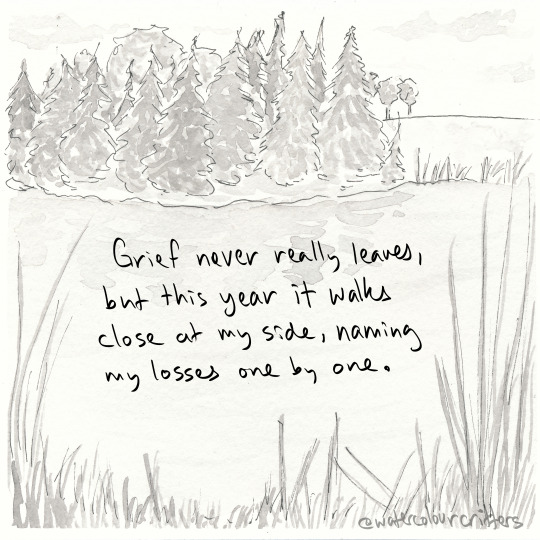 Grief never really leaves,
but this year it walks
close at my side, naming
my losses one by one.
@watercolourcritters